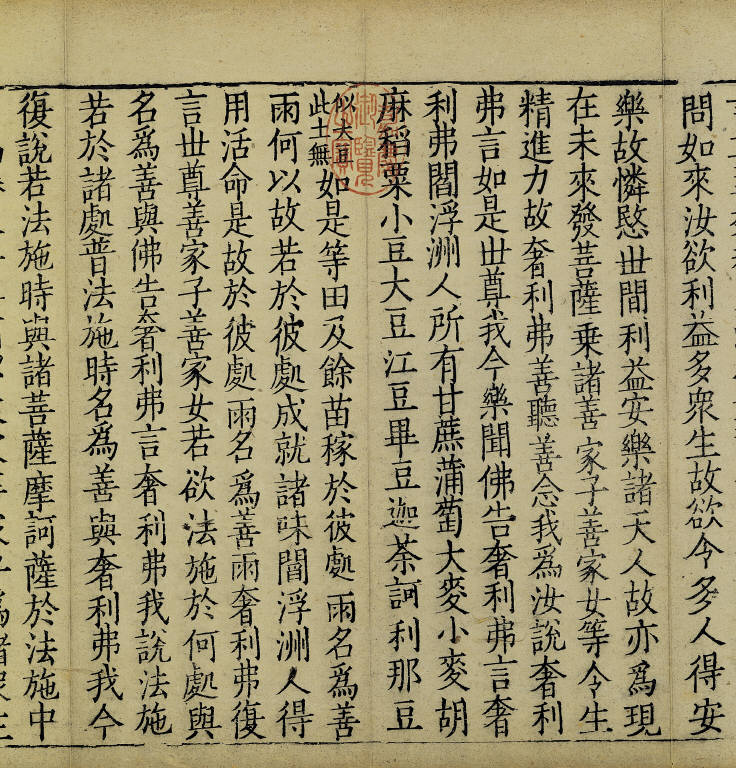 問如來汝欲利益多衆生故欲令多人得安
樂故憐愍世間利益安樂諸天人故亦為現
在未來發菩薩乗諸善家子善家女等令生
精進力故奢利弗善聽善念我為汝說奢利
弗言如是世尊我今樂聞佛告奢利弗言奢
利弗閻浮洲人所有甘蔗蒲萄大麥小麥胡
麻稻粟小豆大豆江豆畢豆迦荼訶利那豆
似大豆此土無如是等田及餘苗稼於彼處雨名為善
雨何以故若於彼處成就諸味閻浮洲人得
用活命是故於彼處雨名為善雨奢利弗復
言世尊善家子善家女若欲法施於何處與
名為善與佛告奢利弗言奢利弗我說法施
若於諸處普法施時名為善與奢利弗我今
復說若法施時與諸菩薩摩訶薩於法施中